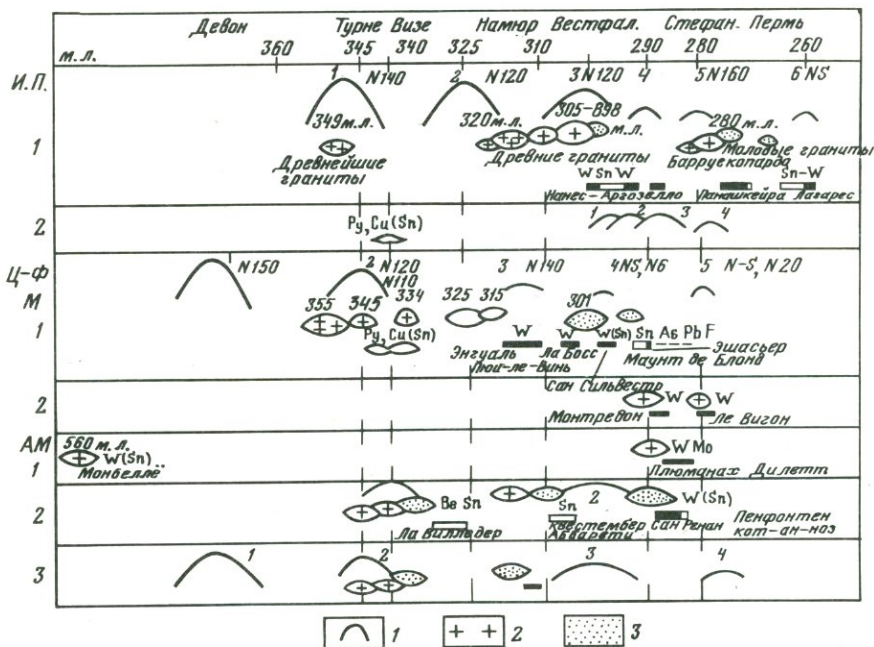 Девон Турне Визе Намюр Вестфал. Стефан. Пермь
м.л. 360 345 340 325 310 290 280 260
И.П.
1 N140 2 N120 3 N120 4 5 N160 6 NS
349 м.л. 320 м.л. 305-898 м.л. 280 м.л.
1
Древнейшие граниты Древние граниты Барруекопарда Молодые граниты
W Sn W Sn-W
Панес-Аргозелло Панашкейра Лагарес
2 Ру, Cu(Sn) 1 2 3 4
Ц-Ф
М
N150 2 N120 N110 3 N140 4NS, N6 5 N-S, N20
1 355 345 334 325 315 301
Ру, Cu(Sn) W W W(Sn) Sn Аб Pb F
Энгуаль Ла Босс Эшасьер
Пюи-ле-Винь Маунт де Блонд
Сан Сильвестр
2 W W
Монтредон Ле Вигон
АМ
1 560 м.л. W(Sn) W Mo
Монбеллё Плюманах Дилетт
2 Be Sn Sn 2 W(Sn)
Ла Вилледер Квестембер Сан Ренан Пенфонтен
Абварети кот-ан-ноз
3 1 2 3 4
1 2 3